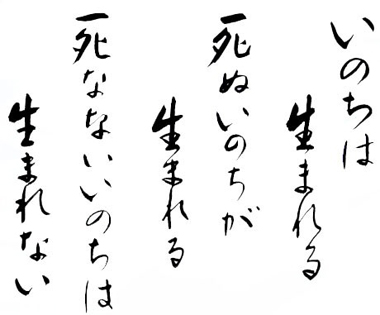 いのちは
生まれる
死ぬいのちが
生まれる
死なないいのちは
生まれない